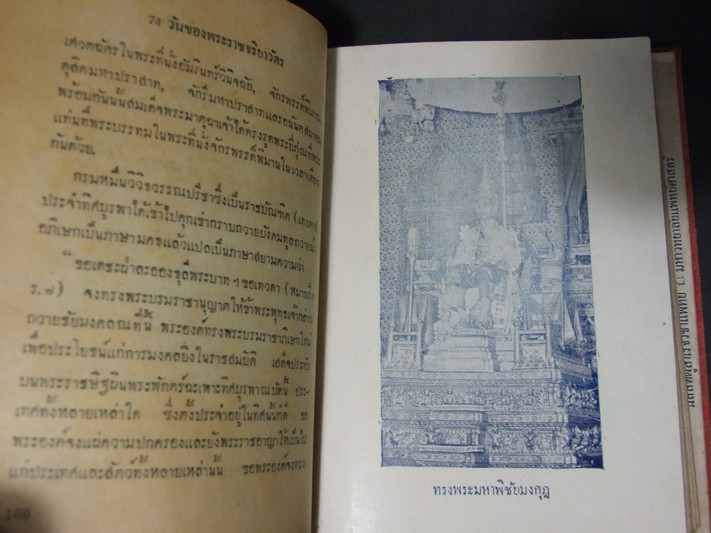 74 วันของพระราชจริยาวัตร
เศวตฉัตรในพระที่นั่งอัมรินทร์วินิจฉัย, จักรพรรดิพิมาน,
ดุสิตมหาปราสาท, จักรีมหาปราสาทและอนันตสมาคม
พร้อมกันนั้นสมเด็จพระมาตุฉาเจ้าได้ทรงจุด
แท่นที่พระบรรทมในพระที่นั่งจักรพรรดิพิมานในเวลา
กันด้วย.
กรมหมื่นวิวิธวรรณปรีชาซึ่งเป็นราชบัณฑิต
ประจำทิศบูรพาได้เข้าไปคุกเข่ากราบถวายบังคมทูลถวาย
อภิเษกเป็นภาษามคธแล้วแปลเป็นภาษาสยามความว่า
“ขอเดชะฝ่าละอองธุลีพระบาท ๆ ขอเทวดา
ร.๗) จงทรงพระบรมราชานุญาตให้ข้าพระพุทธเจ้ากล่าว
ถวายชัยมงคลณที่นี้ พระองค์ทรงพระบรมราชาภิเษกใหม่
เพื่อประโยชน์แก่การมงคลยิ่งในราชสมบัติ เสด็จประทับ
บนพระราชบัลลังก์ผินพระพักตร์ฉะเพาะทิศบูรพาณบัดนี้ ประ-
เทศทั้งหลายเหล่าใด ซึ่งตั้งประจำอยู่ในทิศนั้นก็ดี ขอ
พระองค์จงแผ่ความปกครองและยังพระราชอาญาให้เป็นไป
แก่ประเทศและสัตว์ทั้งหลายเหล่านั้น ขอพระองค์จงทรง
160
ทรงพระมหาพิชัยมงกุฎ